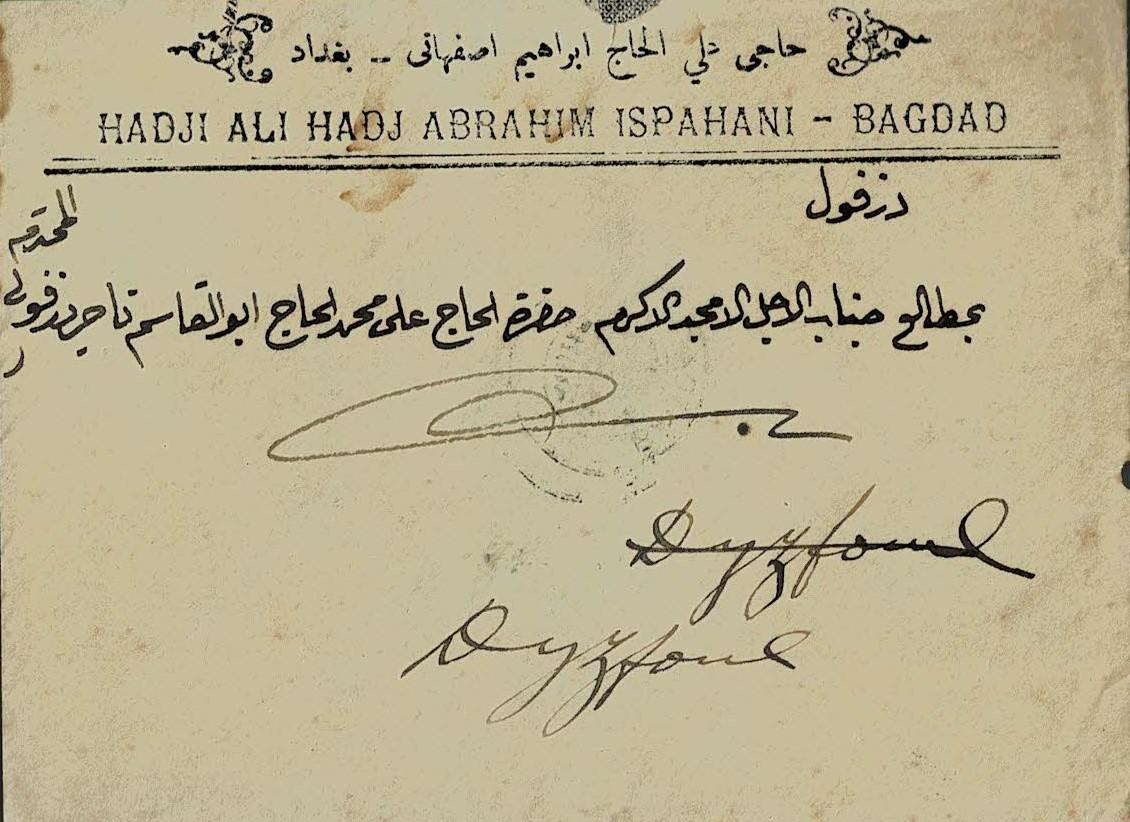 حاجی علي الحاج ابراهيم اصفهانی -- بغداد
HADJI ALI HADJ ABRAHIM ISPAHANI - BAGDAD
دزفول
بمطالع جناب الاجل الامجد الاكرم حضرة الحاج على محمد الحاج ابو القاسم تاجر دزفولي
المحترم
Dyzfoul
Dyzfoul